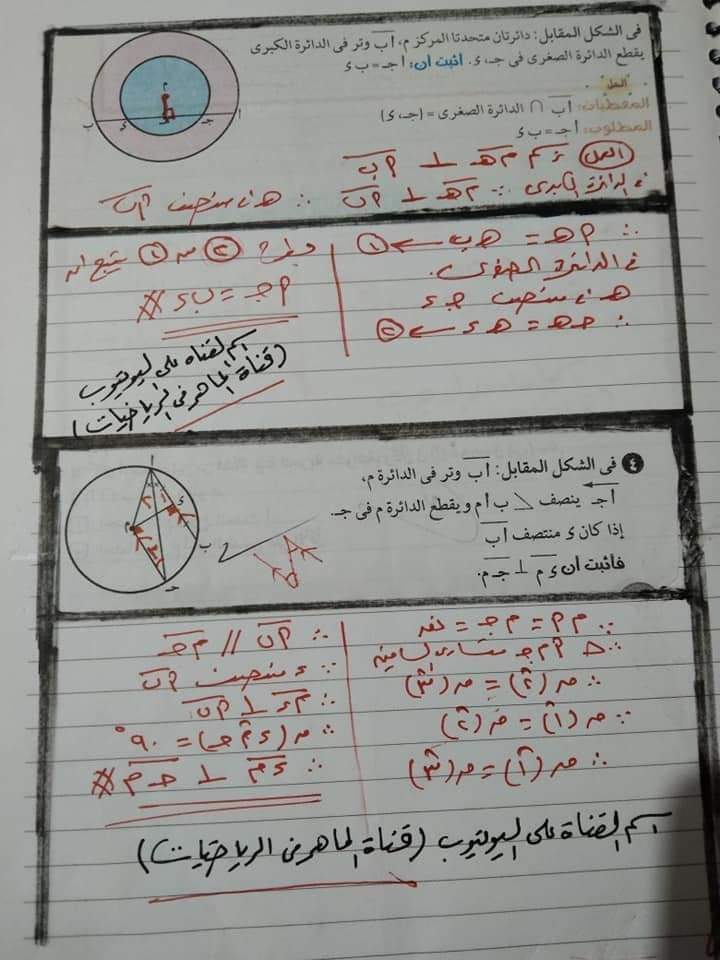 فى الشكل المقابل: دائرتان متحدتا المركز م، أب وتر فى الدائرة الكبرى
يقطع الدائرة الصغرى فى جـ، ء. أثبت أن: أجـ = ب ء
الحل
المعطيات: أب ∩ الدائرة الصغرى = {جـ، ء}
المطلوب: أجـ = ب ء
م
أ
جـ
ء
ب
العمل نرسم م هـ ⊥ أب
فى الدائرة الكبرى ∵ م هـ ⊥ أب ∴ هـ منتصف أب
∴ أهـ = هـ ب ← ①
فى الدائرة الصغرى
هـ منتصف جـ ء
∴ جـ هـ = هـ ء ← ②
وبطرح ② من ① ينتج أن
أجـ = ب ء #
اسم القناه على اليوتيوب
(قناة الماهر فى الرياضيات)
٤ فى الشكل المقابل: أب وتر فى الدائرة م،
أجـ ينصف ∠ ب أ م ويقطع الدائرة م فى جـ.
إذا كان ء منتصف أب
فأثبت أن ء م ⊥ جـ م.
أ
ء
ب
م
جـ
∵ م أ = م جـ = نق
∴ △ أ م جـ متساوى الساقين
∴ ص (٢) = ص (٣)
∵ ص (١) = ص (٢)
∴ ص (١) = ص (٣)
∴ أب // م جـ
∵ ء منتصف أب
∴ م ء ⊥ أب
∴ ص (ء م جـ) = ٩٠°
∴ ء م ⊥ جـ م #
اسم القناة على اليوتيوب (قناة الماهر فى الرياضيات)